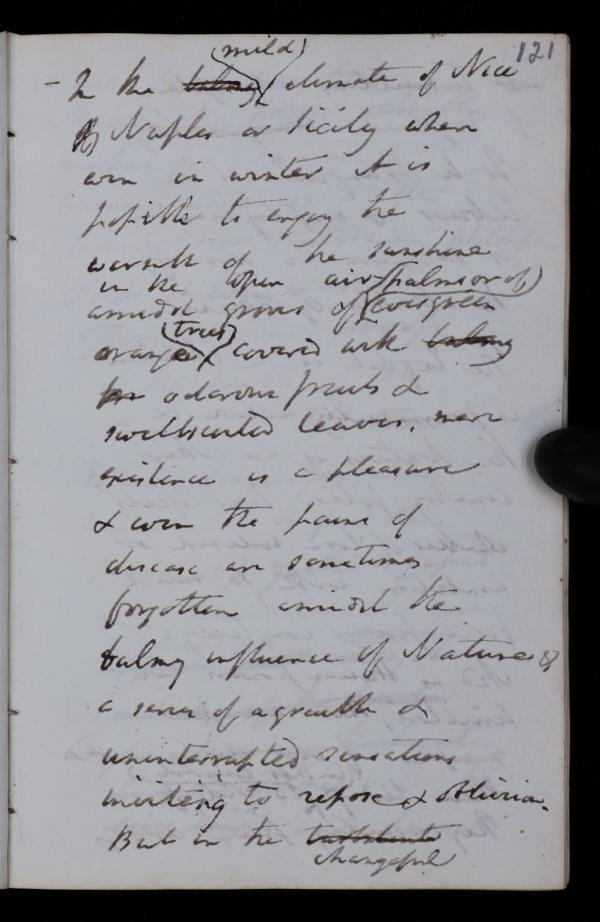 121
(mild)
– In the balmy climate of Nice
Naples or Sicily where
even in winter it is
possible to enjoy the
warmth of the sunshine
in the open air (palms or of)
amidst groves of evergreen
(trees)
orange covered with balmy
odorous fruits &
sweetscented leaves, mere
existence is a pleasure
& even the pains of
disease are sometimes
forgotten amidst the
balmy influence of Nature &
a series of agreeable &
uninterrupted sensations
inviting to repose & oblivion.
But in the turbulent
changeful